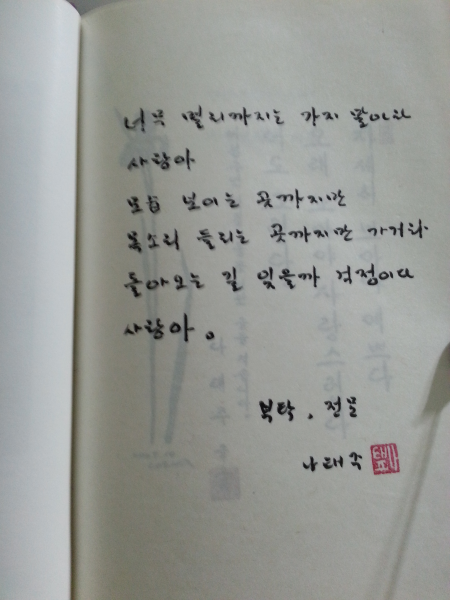 너무 멀리까지는 가지 말아라
사랑아
모습 보이는 곳까지만
목소리 들리는 곳까지만 가거라
돌아오는 길 잊을까 걱정이다
사랑아。
부탁, 전문
나태주